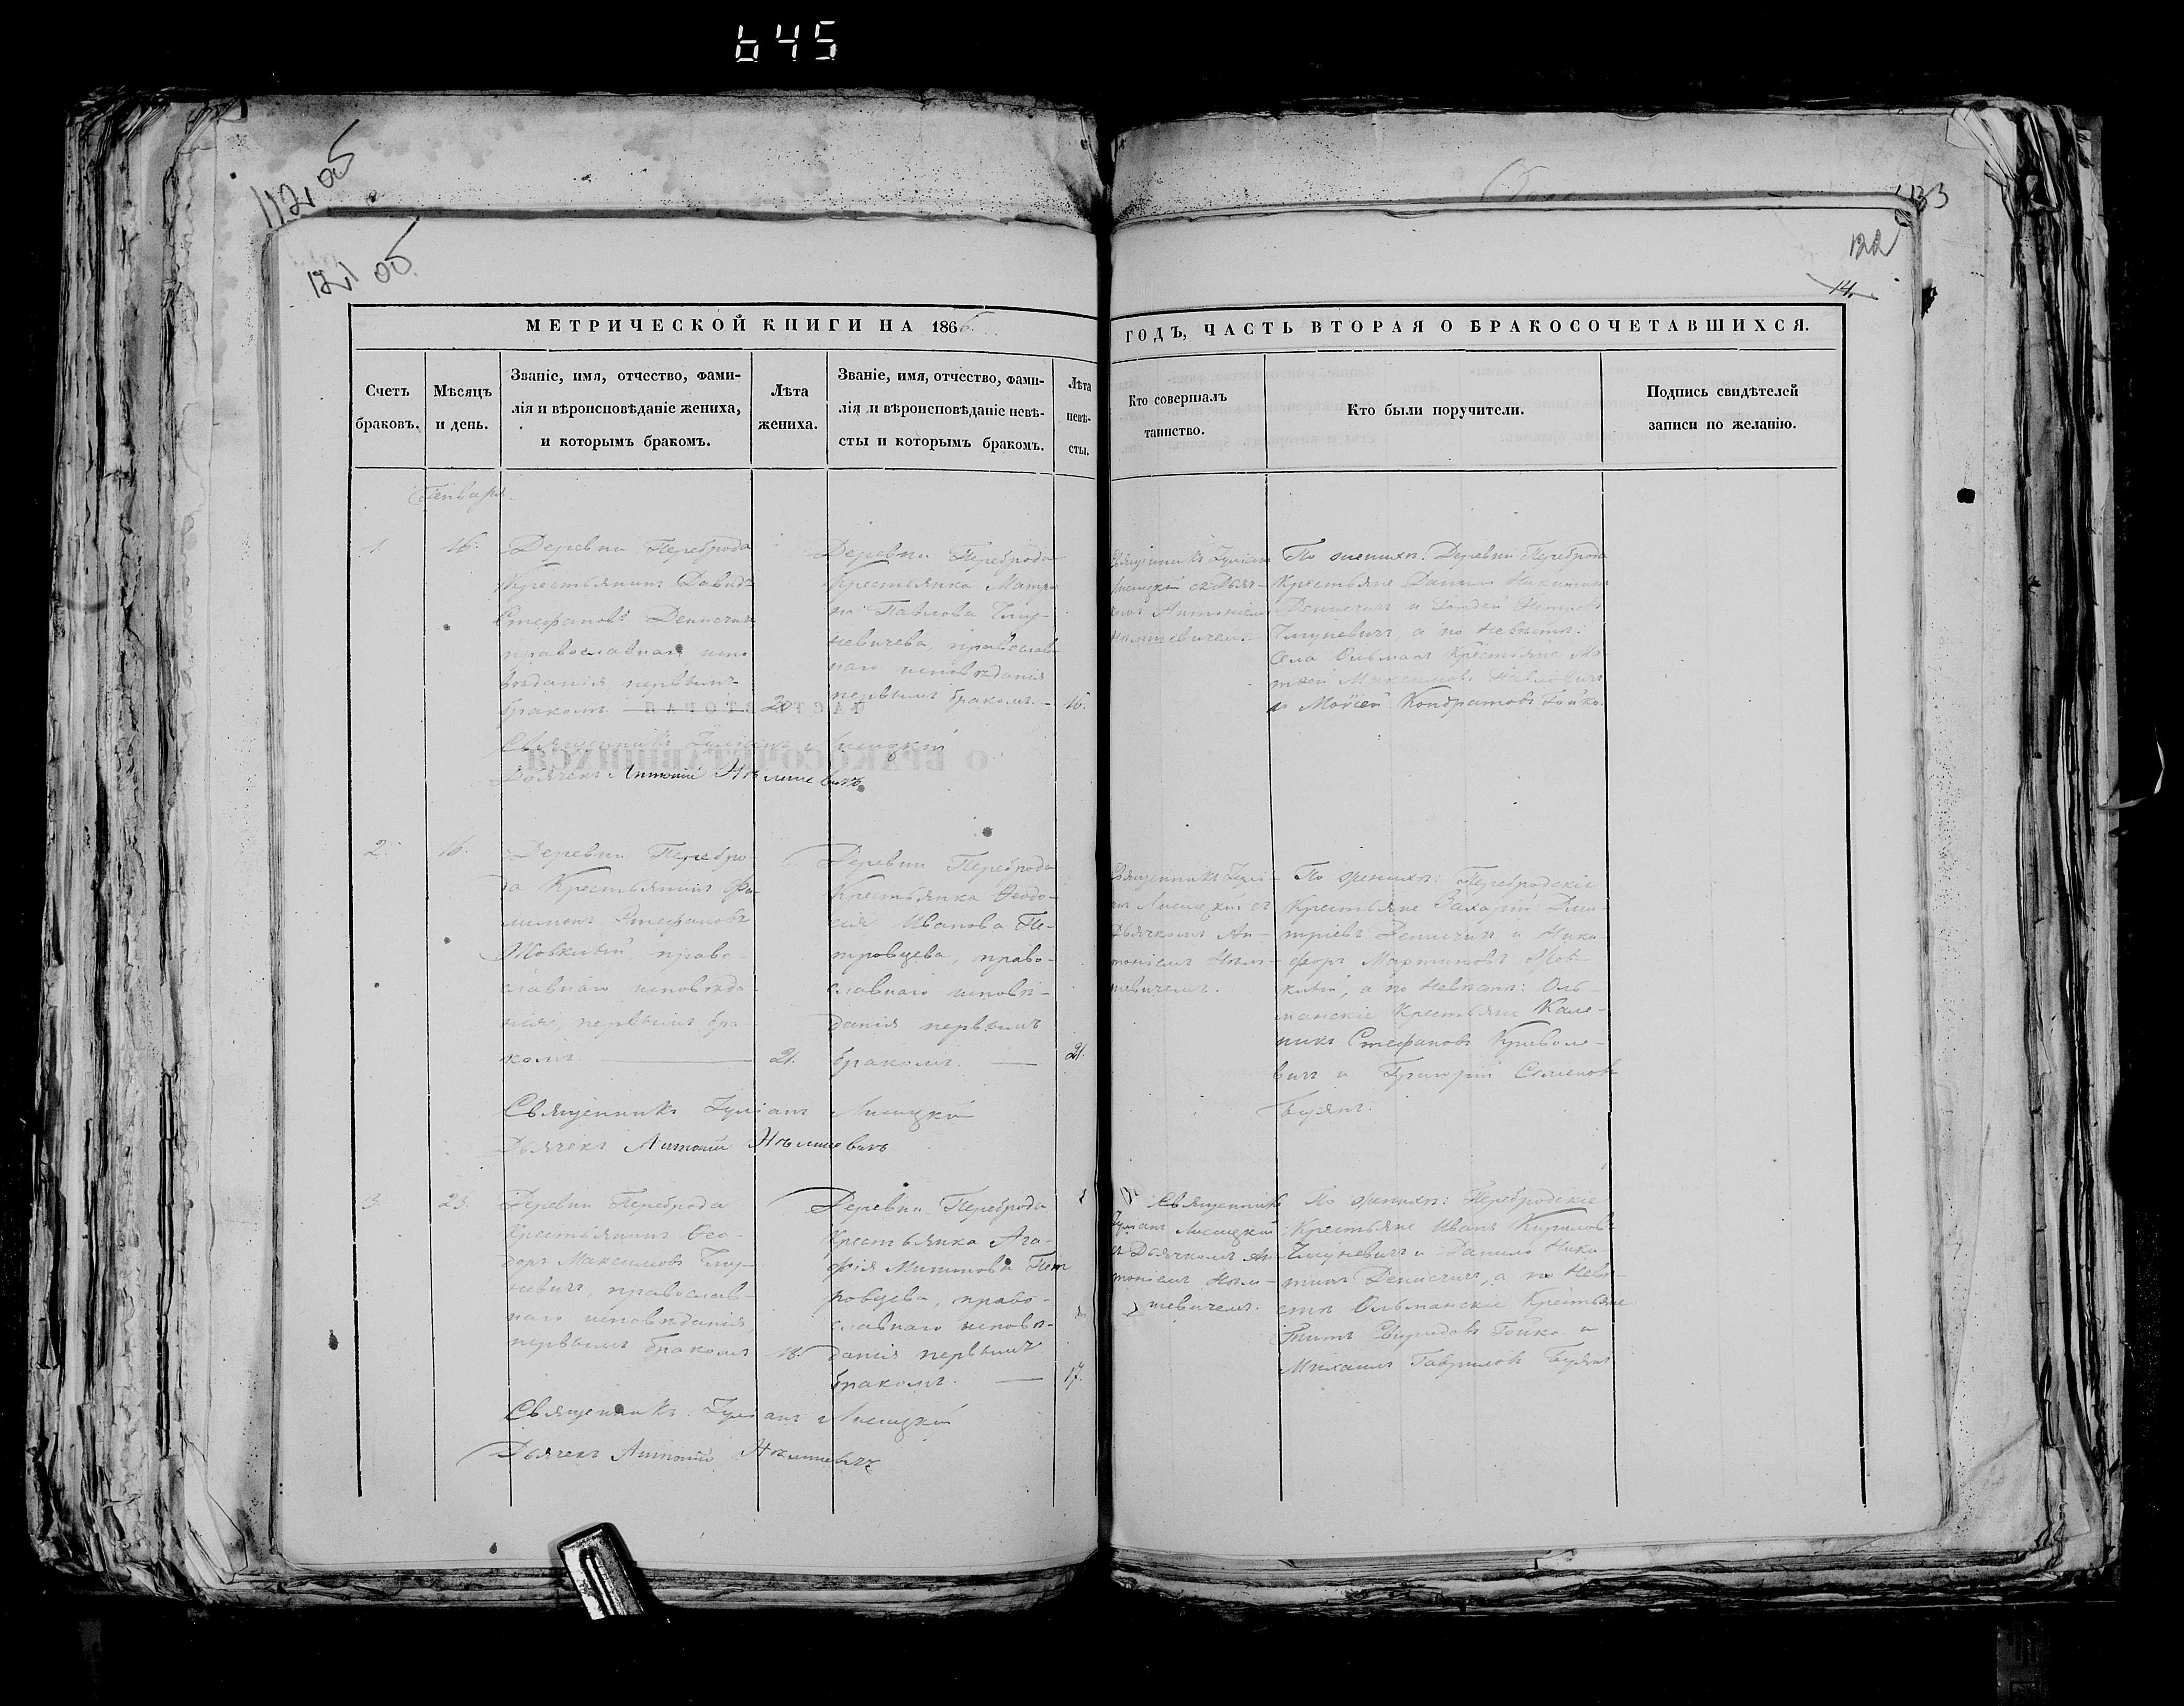 645
112 об
121 об.
133
122
14.
МЕТРИЧЕСКОЙ КНИГИ НА 1866
ГОДЪ, ЧАСТЬ ВТОРАЯ О БРАКОСОЧЕТАВШИХСЯ.
Счетъ
браковъ.
Мѣсяцъ
и день.
Званіе, имя, отчество, фами-
лія и вѣроисповѣданіе жениха,
и которымъ бракомъ.
Лѣта
жениха.
Званіе, имя, отчество, фами-
лія и вѣроисповѣданіе невѣ-
сты и которымъ бракомъ.
Лѣта
невѣ-
сты.
Кто совершалъ
таинство.
Кто были поручители.
Подпись свидѣтелей
записи по желанію.
Генварь
1.
16.
Деревни Переброда
Крестьянинъ Давидъ
Стефановъ Денисчик
православнаго испо
вѣданія, первымъ
бракомъ
20
Деревни Переброда
Крестьянка Матро
на Павлова
невичева, православ
наго исповѣданія
первымъ бракомъ.
16.
Священникъ Іуліанъ
Лисицкій съ Дьяч-
комъ Антоніемъ
По женихѣ: Деревни Переброда
Крестьяне Данило Никитинъ
Денисчикъ и Петровъ
а по Невѣстѣ:
Села Ольманъ Крестьяне Ма-
тѳей Максимовъ
и Моисей Кондратовъ Гойко.
Священникъ Іуліанъ Лисицкій
Дьячекъ Антоній
2.
16.
Деревни Перебро
да Крестьянинъ Фи
лимонъ Стефановъ
Жовклый, право
славнаго исповѣда
нія, первымъ бра
комъ.
21.
Деревни Переброда
Крестьянка Ѳеодо-
сія Иванова Пе-
тровцева, право-
славнаго исповѣ-
данія первымъ
бракомъ.
21.
Священникъ Іулі-
анъ Лисицкій съ
Дьячкомъ Ан-
тоніемъ
шевичемъ.
По женихѣ: Перебродскіе
Крестьяне Захарій Дми-
тріевъ Денисчикъ и Ники
форъ Мартиновъ Жов-
клый, а по Невѣстѣ: Оль-
манскіе Крестьяне Кале-
никъ Стефановъ Криволе-
вич и Григорій Семеновъ
Бузянъ.
Священникъ Іуліанъ Лисицкій
Дьячекъ Антоній
3.
23.
Деревни Переброда
Крестьянинъ Ѳео-
доръ Максимовъ
невичъ, православ-
наго исповѣданія,
первымъ бракомъ
18.
Деревни Переброда
Крестьянка Ага-
фія Пет
ровцева, право-
славнаго исповѣ-
данія первымъ
бракомъ.
17.
Священникъ
Іуліанъ Лисицкій
съ Дьячкомъ Ан-
тоніемъ
шевичемъ.
По женихѣ: Перебродскіе
Крестьяне Иванъ Кириловъ
и Данило Ники
тинъ Денисчикъ, а по Невѣ-
стѣ Ольманскіе Крестьяне
Титъ Гойко и
Михаилъ Гавриловъ Бузянъ
Священникъ Іуліанъ Лисицкій
Дьячекъ Антоній